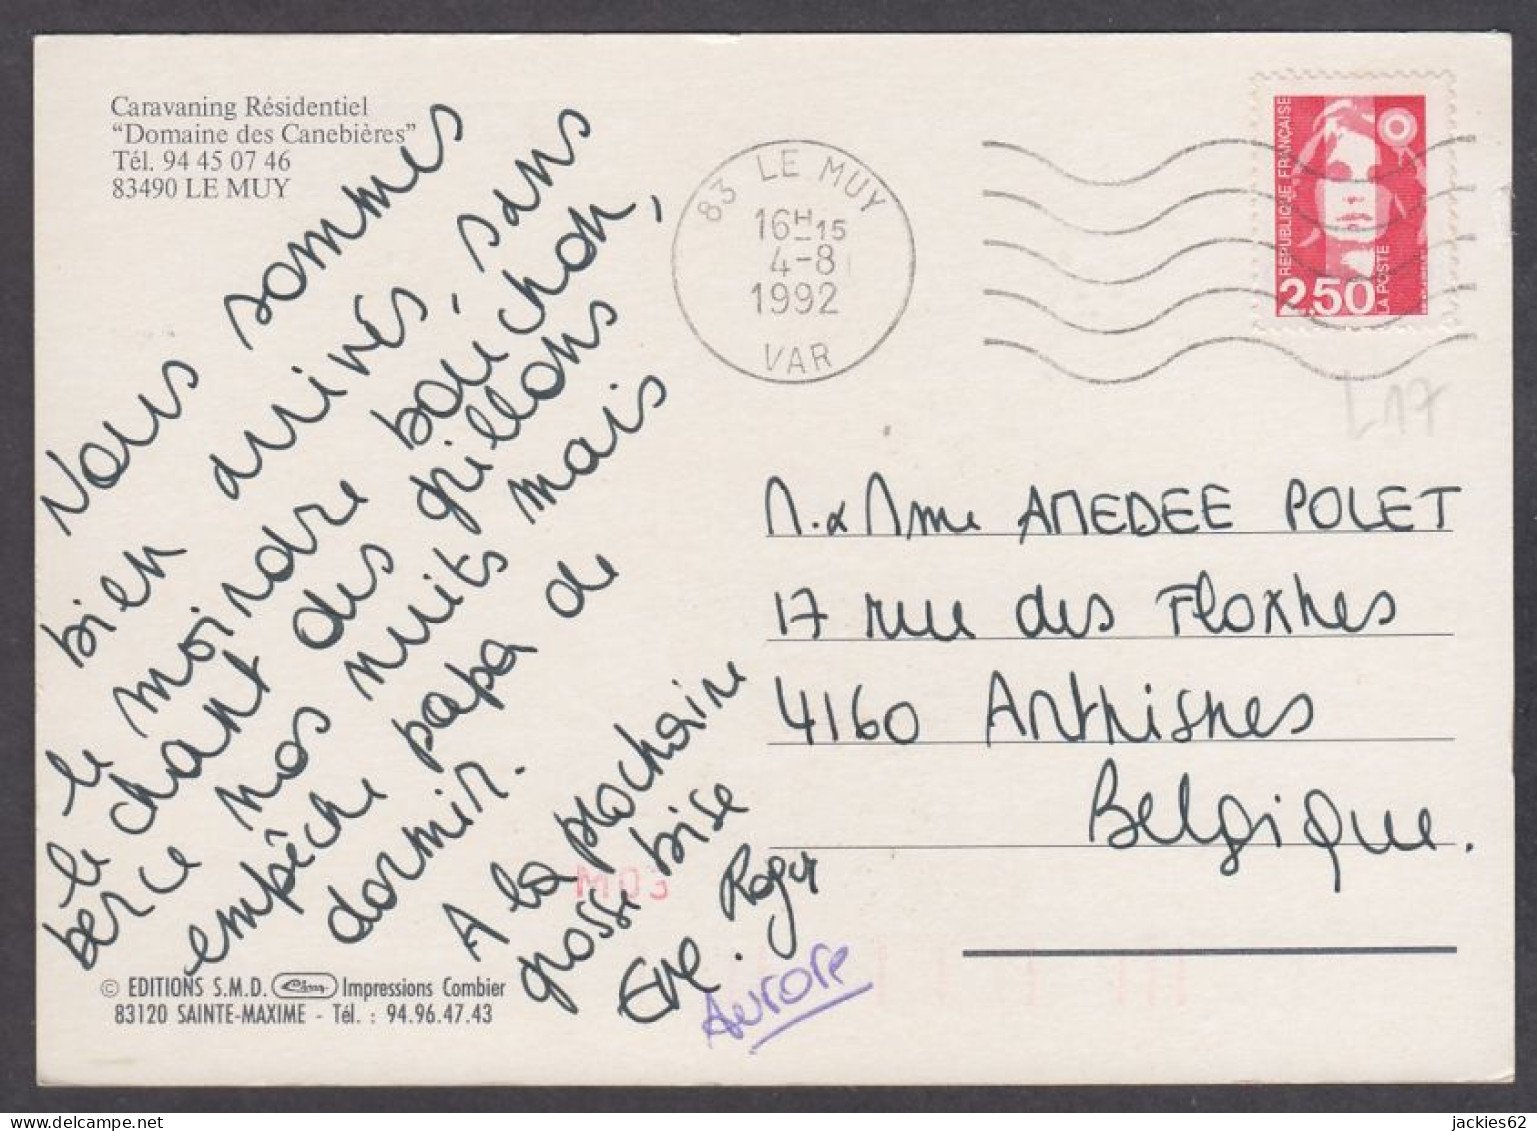 Caravaning Résidentiel
“Domaine des Canebières”
Tél. 94 45 07 46
83490 LE MUY
Nous sommes
bien arrivés, sans
le moindre bouchon,
le chant des grillons
berce nos nuits mais
empêche papa de
dormir.
A la prochaine
grosse bise
Eve. Roger
Aurore
M03
© EDITIONS S.M.D. Cim Impressions Combier
83120 SAINTE-MAXIME - Tél. : 94.96.47.43
83 LE MUY
16H15
4-8
1992
VAR
REPUBLIQUE FRANÇAISE
2,50
LA POSTE
L17
M. & Mme AMEDEE POLET
17 rue des Floxhes
4160 Anthisnes
Belgique.
jackies62